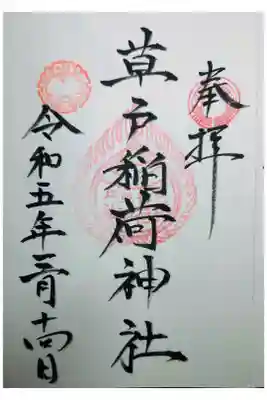 奉拝
草戸稲荷神社
令和五年 十四日